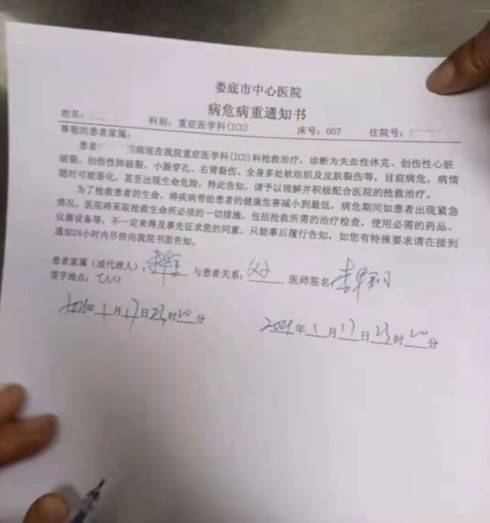 娄底市中心医院
病危病重通知书
姓名: 科别: 重症医学科(ICU) 床号: 007 住院号:
尊敬的患者家属:
患者 现在我院重症医学科(ICU)科抢救治疗, 诊断为失血性休克、创伤性心脏
破裂、创伤性肺破裂、小肠穿孔、右肾裂伤、全身多处软组织及皮肤裂伤等, 目前病危, 病情
随时可能恶化, 甚至出现生命危险, 特此告知, 请予以理解并积极配合医院的抢救治疗。
为了抢救患者的生命, 将疾病带给患者的健康危害减小到最低, 病危期间如患者出现紧急
情况, 医院将采取抢救生命所必须的一切措施, 包括抢救所需的治疗检查, 使用必需的药品、
仪器设备等, 不一定来得及事先征求您的同意, 只能事后履行告知, 如您有特殊要求请在接到
通知24小时内尽快向我院书面告知。
患者家属(或代理人): 与患者关系: 父子 医师签名
签字地点: ICU
2021年1月17日23时20分
2021年1月17日23时20分